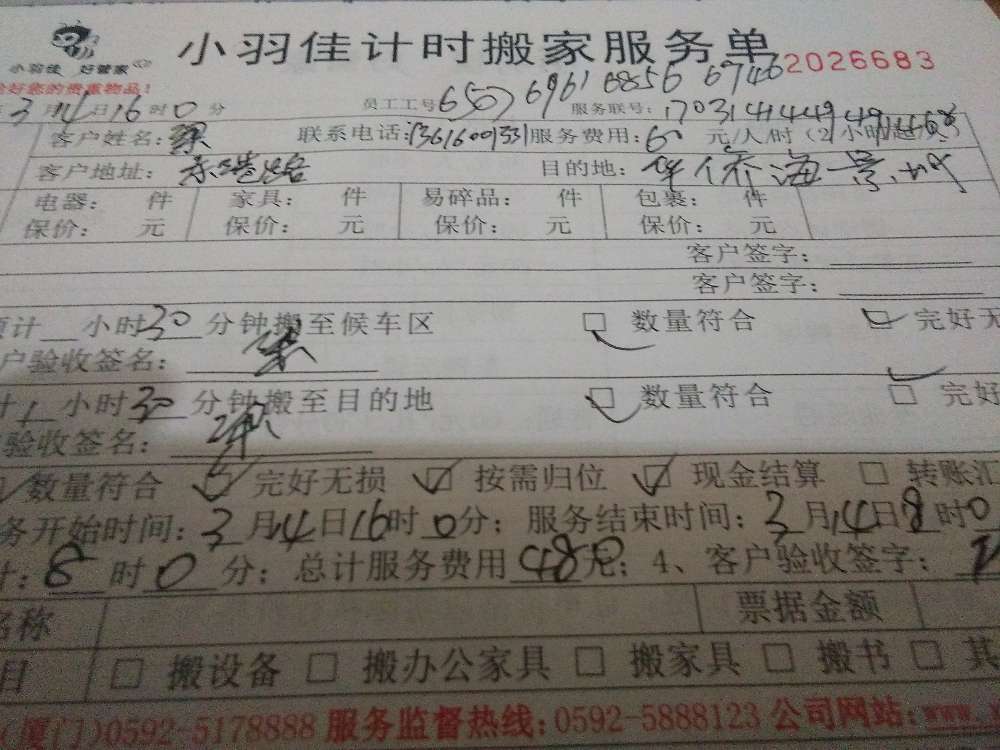 小羽佳计时搬家服务单 2026683
小羽佳 好管家
好您的贵重物品!
3月14日16时0分 员工工号6507 6961 6856 6746 服务联号:
客户姓名: 联系电话: 服务费用:60元/人/时(2小时起
客户地址: 目的地:华侨海景城
电器: 件 家具: 件 易碎品: 件 包裹: 件
保价: 元 保价: 元 保价: 元 保价: 元
客户签字:
客户签字:
预计 小时30分钟搬至候车区 □ 数量符合 □ 完好无
户验收签名:
计1小时30分钟搬至目的地 □ 数量符合 □ 完好
验收签名:
数量符合 完好无损 按需归位 现金结算 □ 转账汇
务开始时间:3月14日16时0分; 服务结束时间:3月14日8时0
计:8时0分; 总计服务费用480元; 4、客户验收签字:
名称 票据金额
目 □ 搬设备 □ 搬办公家具 □ 搬家具 □ 搬书 □ 其
(厦门)0592-5178888 服务监督热线:0592-5888123 公司网站:www.